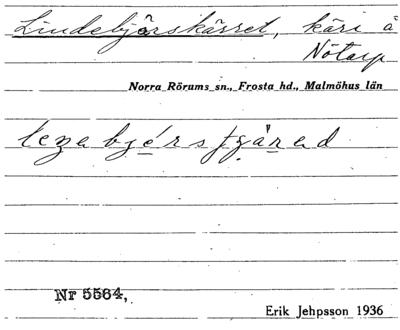 Lindebjärskärret, kärr å
Nötarp
Norra Rörums sn., Frosta hd., Malmöhus län
Nr 5564,
Erik Jehpsson 1936